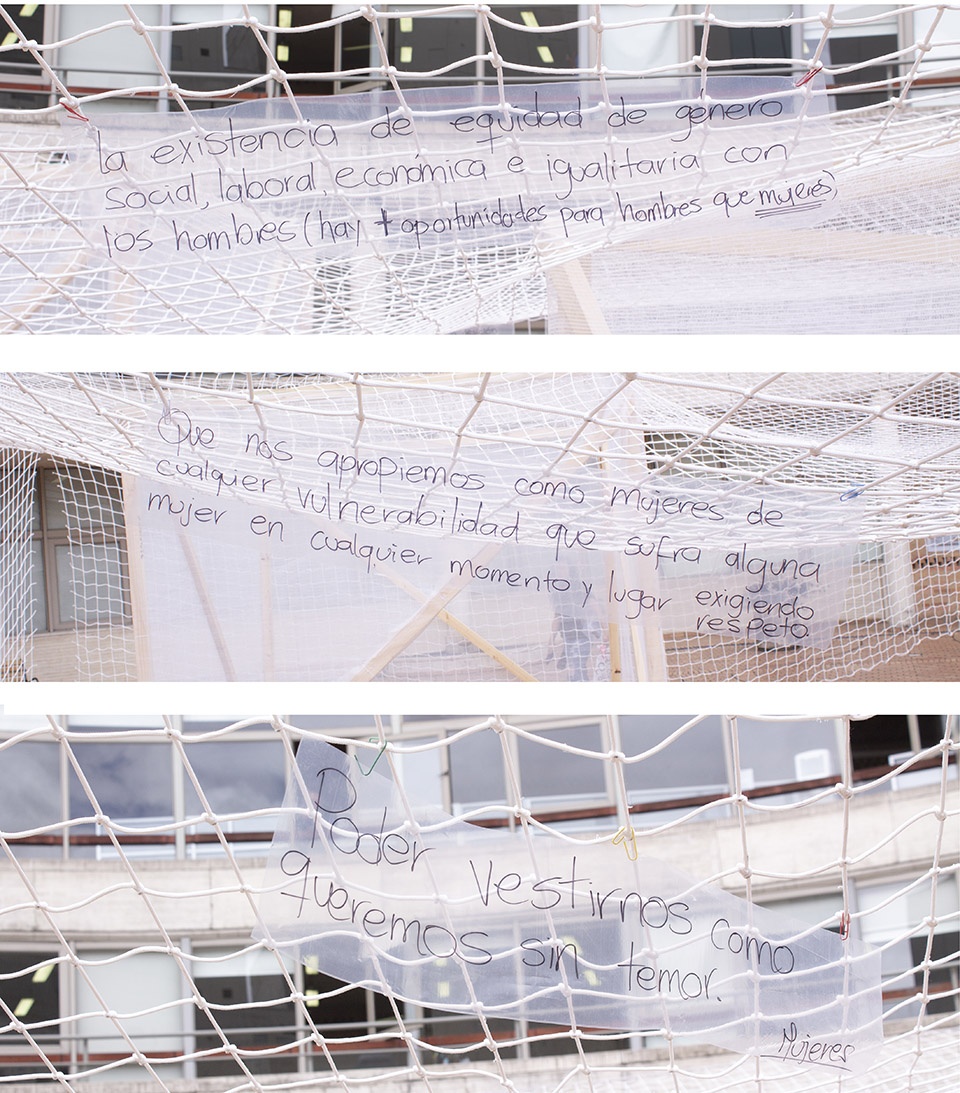 la existencia de equidad de género
social, laboral, económica e igualitaria con
los hombres (hay + oportunidades para hombres que mujeres)
Que nos apropiemos como mujeres de
cualquier vulnerabilidad que sufra alguna
mujer en cualquier momento y lugar exigiendo
respeto.
Poder vestirnos como
queremos sin temor.
Mujeres